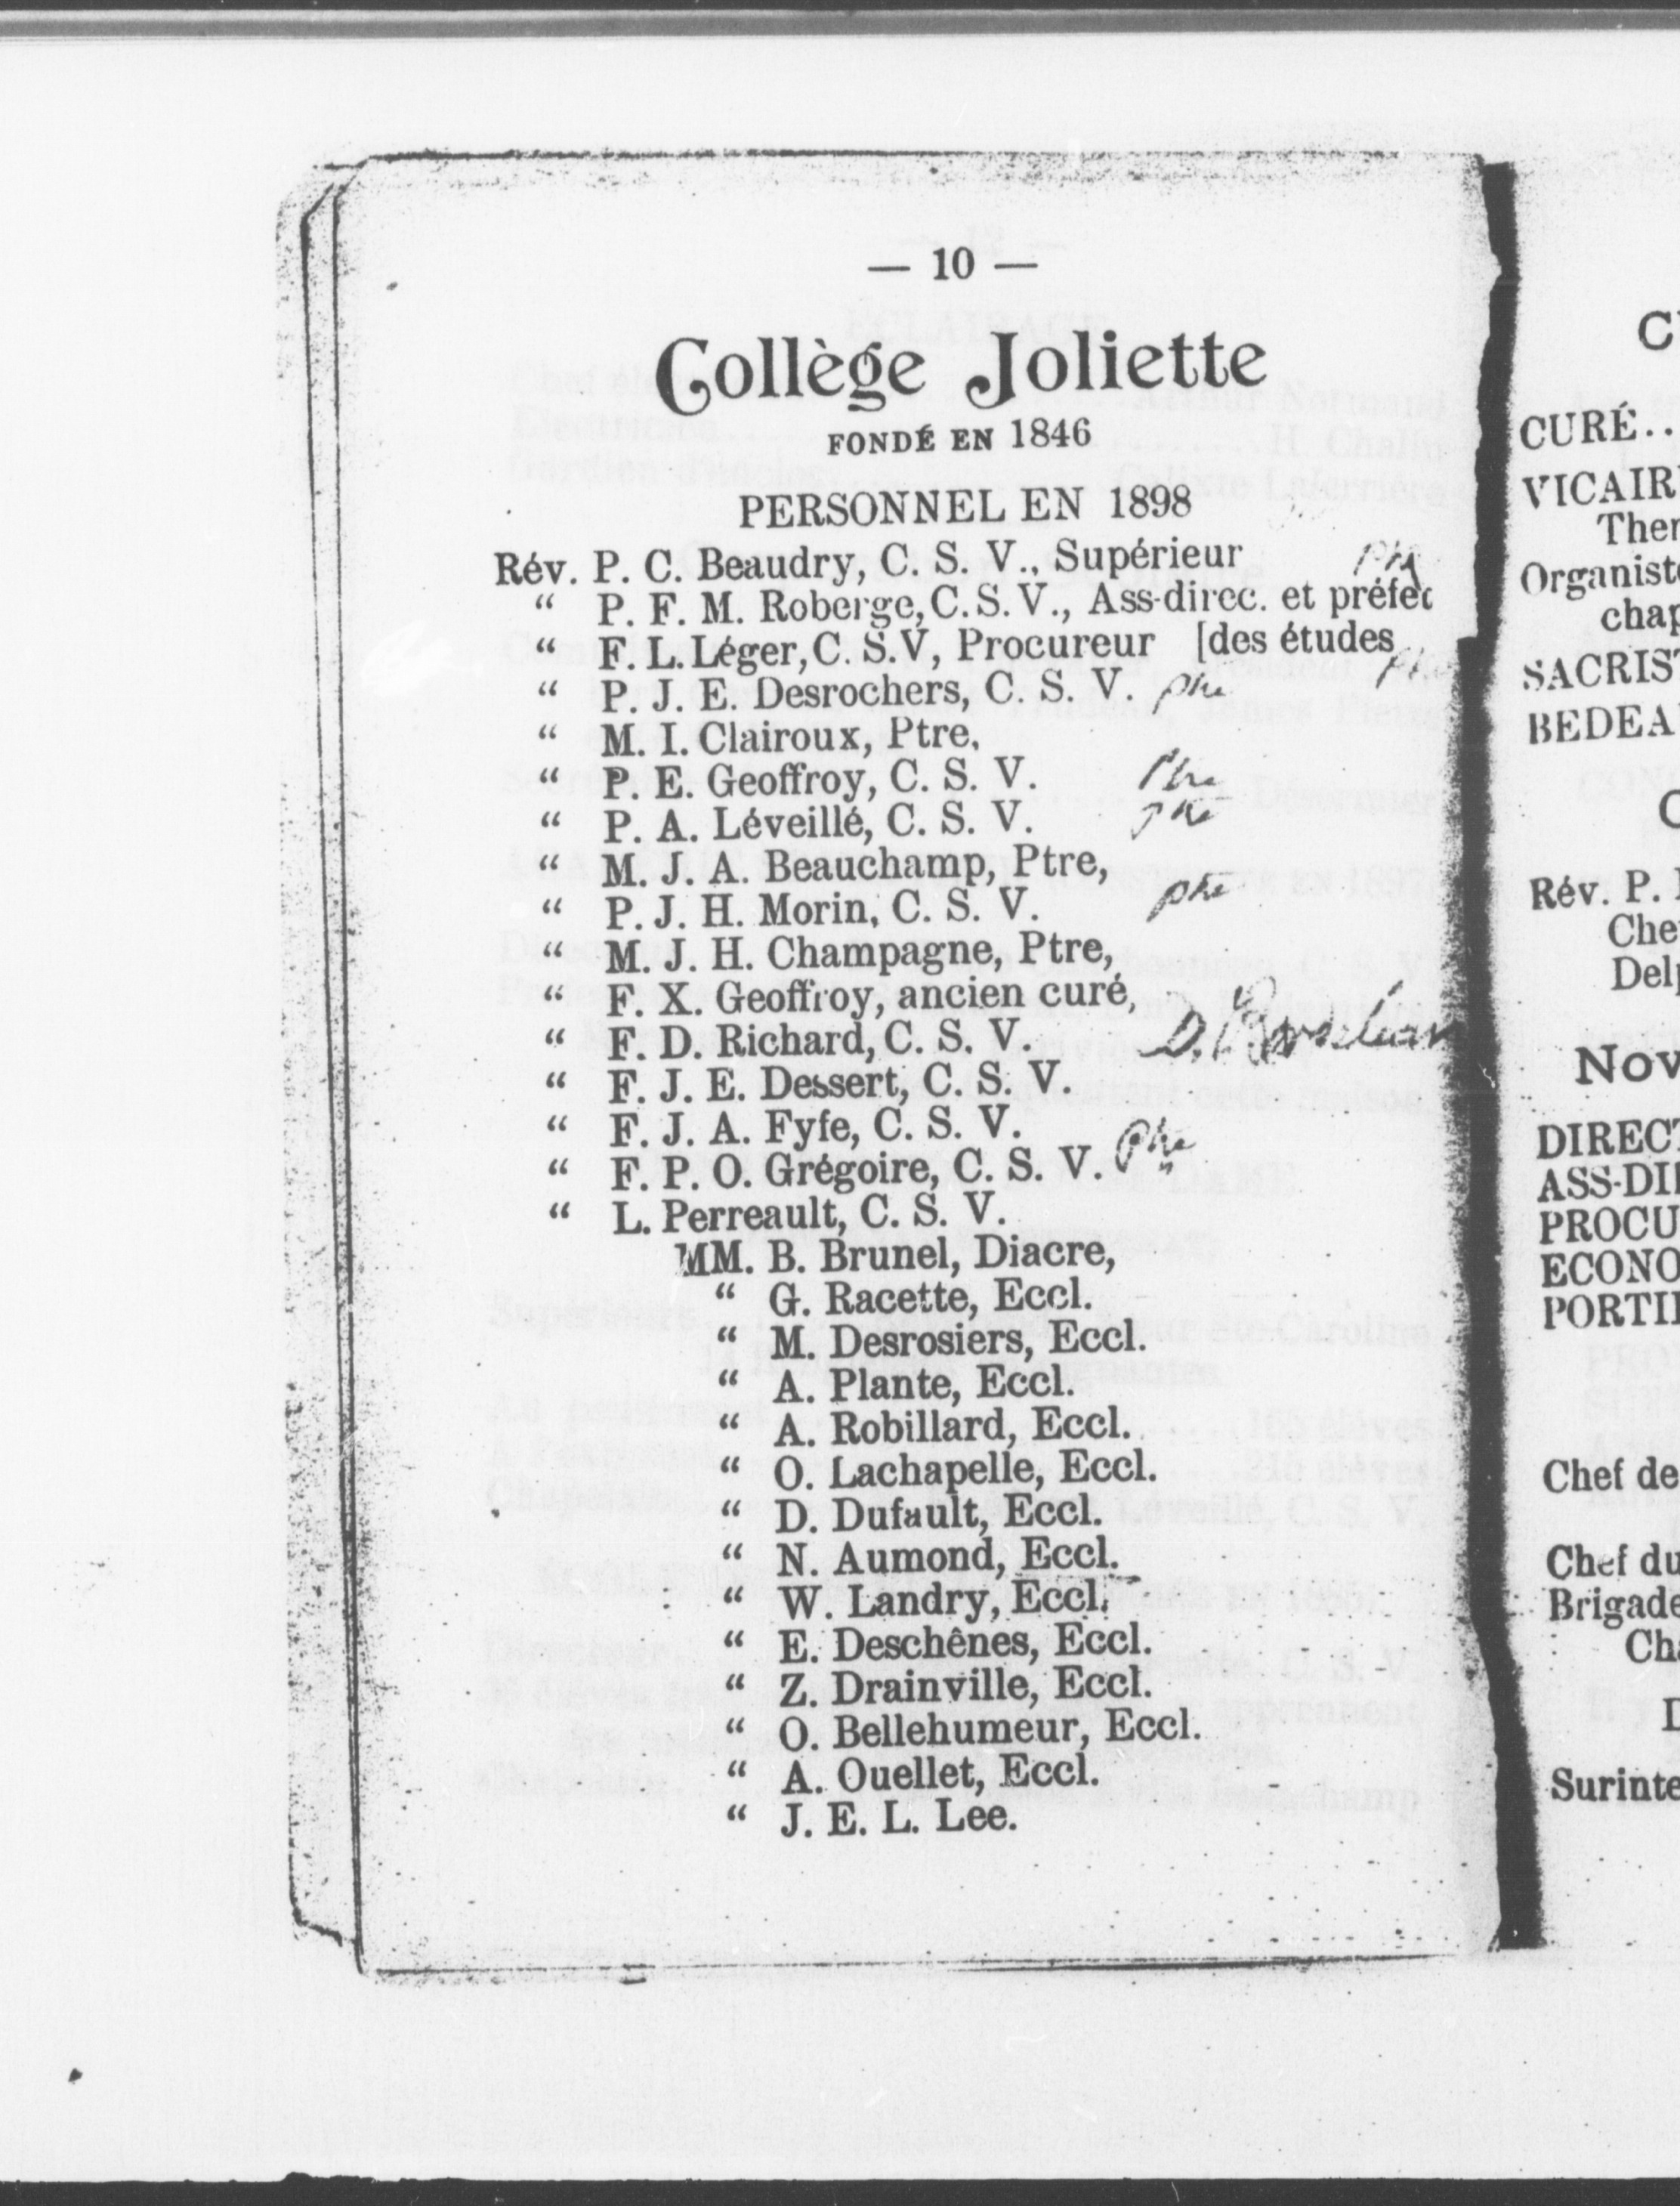 — 10 —
Collège Joliette
FONDÉ EN 1846
PERSONNEL EN 1898
Rév. P. C. Beaudry, C. S. V., Supérieur
“ P. F. M. Roberge, C. S. V., Ass-direc. et préfet
“ F. L. Léger, C. S. V, Procureur [des études
“ P. J. E. Desrochers, C. S. V. phe
“ M. I. Clairoux, Ptre,
“ P. E. Geoffroy, C. S. V. Phe
“ P. A. Léveillé, C. S. V. phe
“ M. J. A. Beauchamp, Ptre,
“ P. J. H. Morin, C. S. V. phe
“ M. J. H. Champagne, Ptre,
“ F. X. Geoffroy, ancien curé,
“ F. D. Richard, C. S. V. D.
“ F. J. E. Dessert, C. S. V.
“ F. J. A. Fyfe, C. S. V.
“ F. P. O. Grégoire, C. S. V. Phe
“ L. Perreault, C. S. V.
MM. B. Brunel, Diacre,
“ G. Racette, Eccl.
“ M. Desrosiers, Eccl.
“ A. Plante, Eccl.
“ A. Robillard, Eccl.
“ O. Lachapelle, Eccl.
“ D. Dufault, Eccl.
“ N. Aumond, Eccl.
“ W. Landry, Eccl.
“ E. Deschênes, Eccl.
“ Z. Drainville, Eccl.
“ O. Bellehumeur, Eccl.
“ A. Ouellet, Eccl.
“ J. E. L. Lee.
C
CURÉ..
VICAIR
Ther
Organist
chap
SACRIS
BEDEA
Rév. P.
Che
Del
Nov
DIREC
ASS-DI
PROCU
ECONO
PORTI
Chef de
Chef du
Brigade
Cha
Surinte